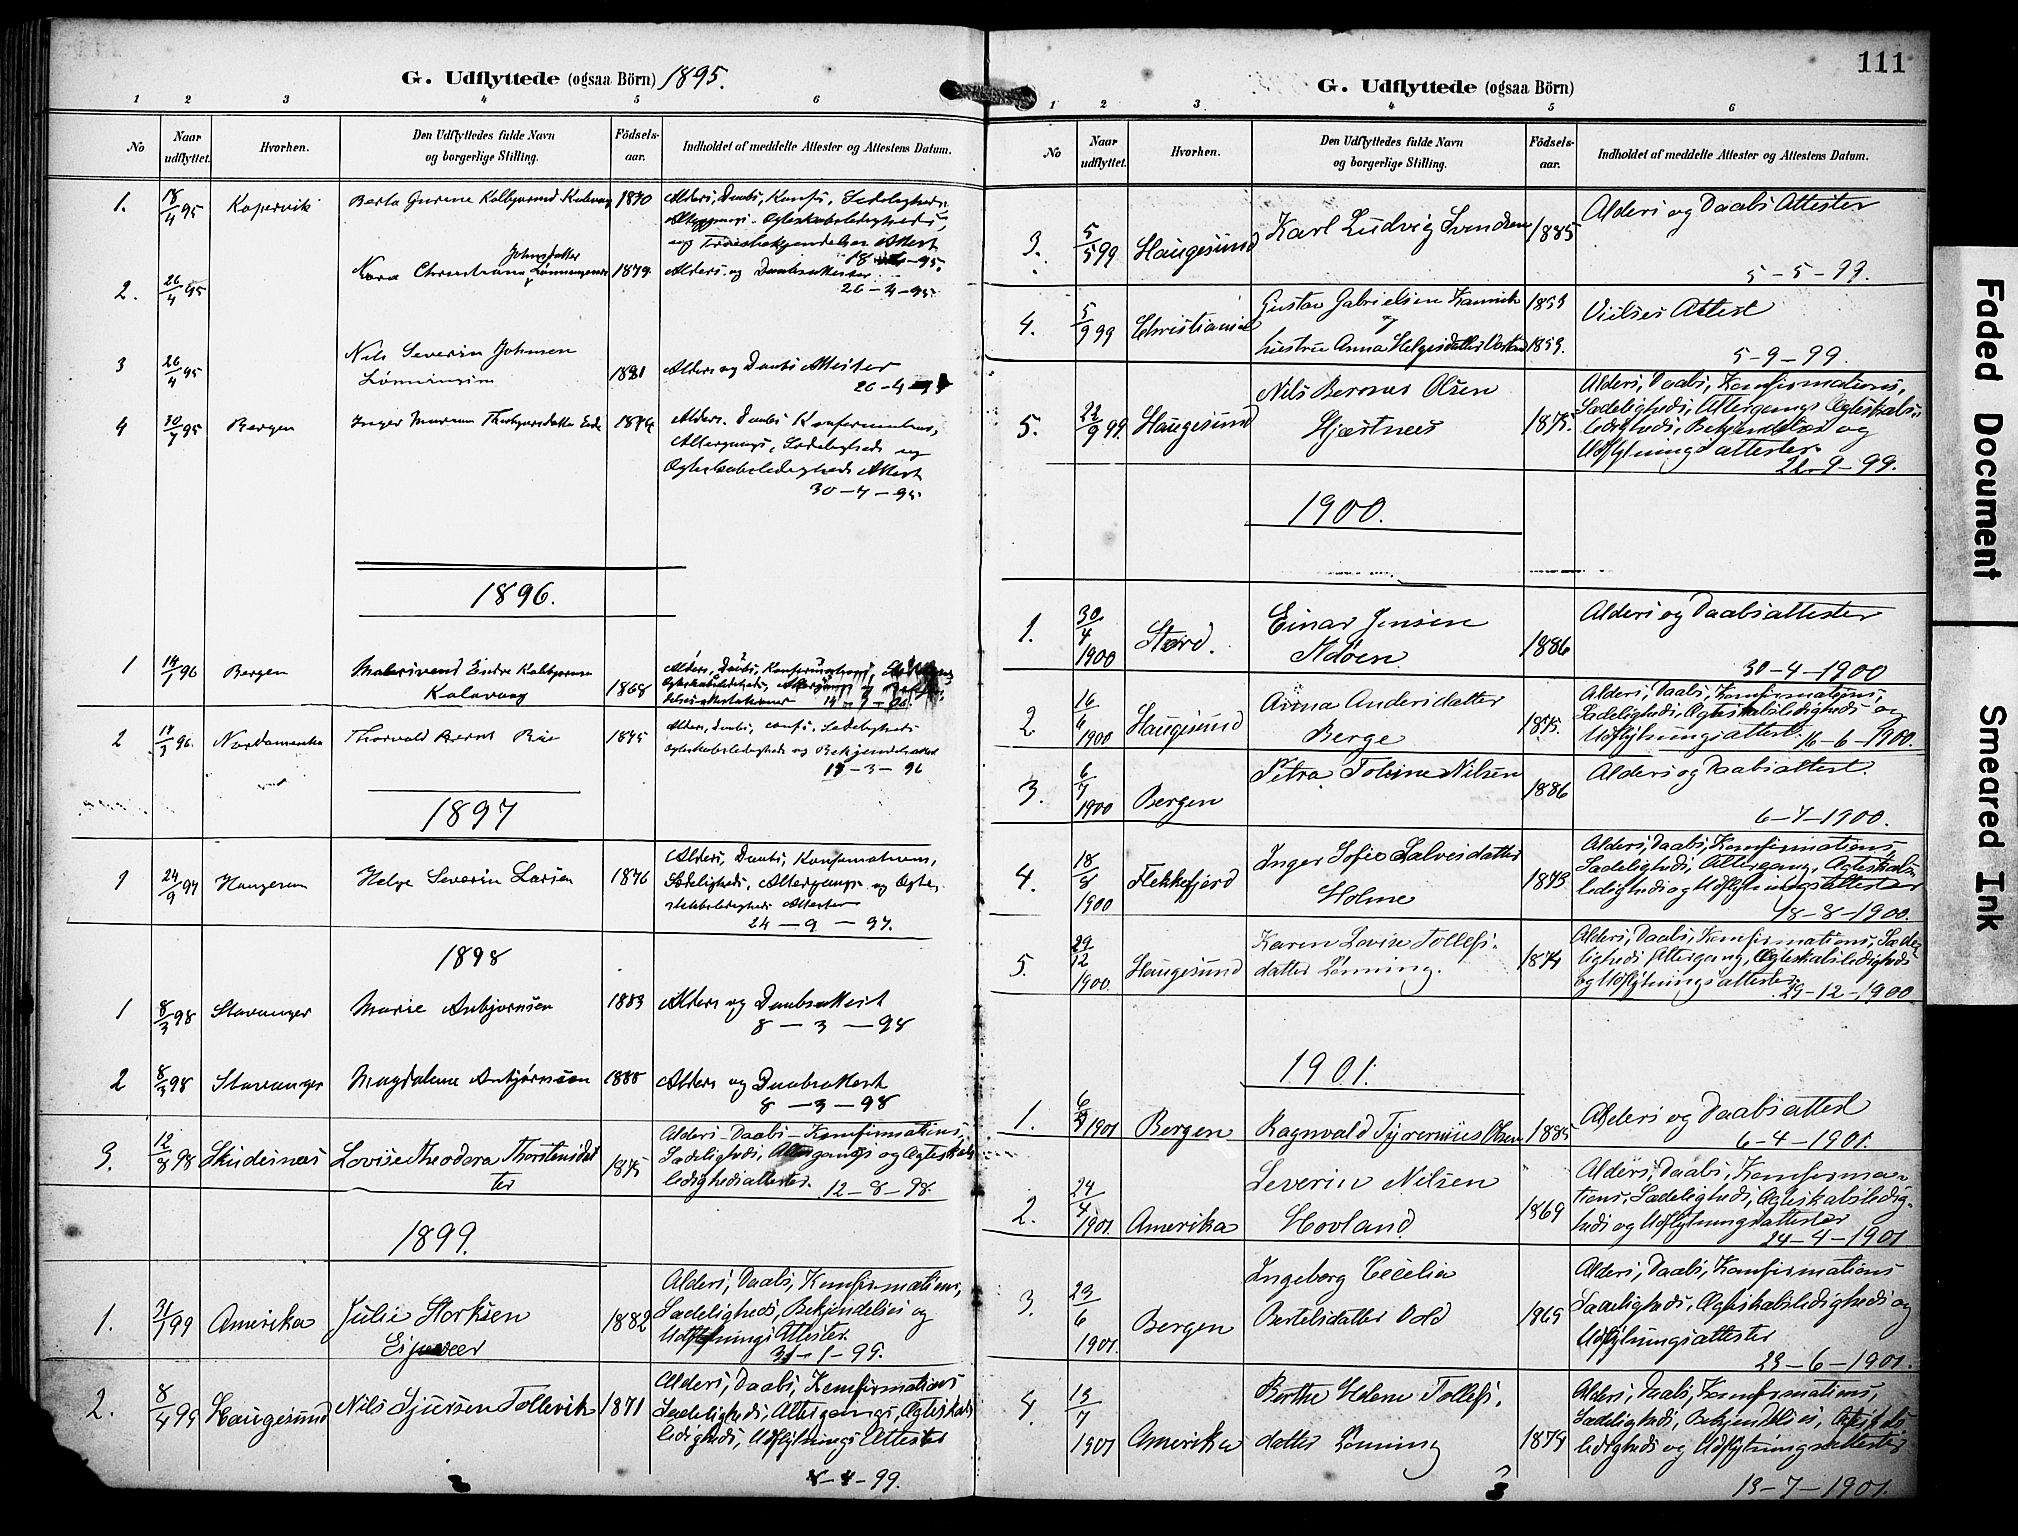 G. Udflyttede (ogsaa Börn) 1895.
1 2 3 4 5 6
No
Naar udflyttet.
Hvorhen.
Den Udflyttedes fulde Navn og borgerlige Stilling.
Födsels-aar.
Indholdet af meddelte Attester og Attestens Datum.
1. 18/4 95 Kopervik Berta Gurine 1870 Alders, Daabs, Konfs, Sædeligheds,
Ægteskabsledigheds,
og Attest
18 - 95.
2. 26/4 95 Christiana Johnsdatter 1879 Alders og Daabsattester
26-4-95
3 26/4 95 Nils Severin Johnsen
1881 Alders og Daabs Attester
26-4-95
4 30/7 95 Bergen Inger 1874 Alders, Daabs Konfirmations,
Altergangs, Sædeligheds og
Ægteskabsledigheds Attest
30-7-95
1896.
1 14/1 96 Bergen Endre
Kalavaag 1868 Alders, Daabs, Konfirmations,
2 17/3 96 Nordamerika Thorvald Bernt 1875 Alders, Daabs, Confs, Sædeligheds
Ægteskabsledigheds og
17-3-96
1897
1 24/9 97 Haugesun Helge Severin Larsen 1876 Alders, Daabs, Konfirmations,
Sædeligheds, Altergangs og Ægte-
skabsledigheds Attester
24-9-97.
1898
1 8/3 98 Stavanger Marie Anbjørnsen 1883 Alders og Daabsattest
8-3-98
2 8/3 98 Stavanger Magdalene Anbjørnsen 1888 Alders og Daabsattest
8-3-98
3. 12/8 98 Skudesnæs Lovise Theodora Thorstensdat
ter 1875 Alders-Daabs-Konfirmations,
Sædeligheds, Altergangs og Ægteskabs
ledighedsattester. 12-8-98.
1899.
1. 31/1 99 Amerika Julie Storksen
1882 Alders, Daabs, Konfirmations,
Sædeligheds, Bekjendelses og
Udflytnings Attester
31-1-99.
2. 8/4 99 Haugesund Nils Sjursen Tollevik 1871 Alders, Daabs, Konfirmations
Sædeligheds, Altergangs, Ægteskabs
ledigheds, Udflytnings Attester
8-4-99.
111
G. Udflyttede (ogsaa Börn)
1 2 3 4 5 6
No
Naar udflyttet.
Hvorhen.
Den Udflyttedes fulde Navn og borgerlige Stilling.
Födsels-aar.
Indholdet af meddelte Attester og Attestens Datum.
3. 5/5 99 Haugesund Karl Ludvig Svendsen 1885 Alders og Daabs Attester
5-5-99.
4. 5/9 99 Christiania Gustav Gabrielsen 1859 Vielses Attest
og
hustru Anna Helgesdatter 1859.
5-9-99.
5. 22/9 99 Haugesund Nils Olsen
Hjærtnæs 1875. Alders, Daabs, Konfirmations,
Sædeligheds, Altergangs Ægteskabs-
ledigheds, og
Udflytningsattester.
22-9-99.
1900.
1. 30/4 1900 Stord. Einar Jensen
Ådøen. 1886 Alders og Daabsattester
30-4-1900
2 16/6 1900 Haugesund Anna Andersdatter
Berge 1875. Alders, Daabs, Konfirmations,
Sædeligheds, Ægteskabsledigheds og
Udflytningsattest. 16-6-1900.
3. 6/7 1900 Bergen Petra Toline Nilsen 1886 Alders og Daabsattest.
6-7-1900.
4. 18/8 1900 Flekkefjord Inger Sofie Salvesdatter
Holme 1873 Alders, Daabs, Konfirmations,
Sædeligheds, Altergang, Ægteskabs-
ledigheds og Udflytningsattester
18-8-1900.
5. 29/12 1900 Haugesund Karen Lovise Tollefs-
datter Lønning. 1874 Alders, Daabs, Konfirmations, Sæde-
ligheds Altergang, Ægteskabsledigheds
og Udflytningsattester
29-12-1900
1901.
1. 6/4 1901 Bergen Ragnvald Olsen 1885 Alders og Daabsattest
6-4-1901.
2. 24/4 1901 Amerika Severin Nilsen
Hovland 1869 Alders, Daabs, Konfirma-
tions, Sædeligheds, Ægteskabsledig-
heds og Udflytningsattester
24-4-1901
3. 29/6 1901 Bergen Ingeborg Cecelia
Bertelsdatter Vold 1869 Alders, Daabs, Konfirmations
Sædeligheds, Ægteskabsledigheds og
Udflytningsattester
29-6-1901.
4. 13/7 1901 Amerika Berthe Helene Tollefs-
datter Lønning 1879 Alders, Daabs, Konfirmations,
Sædeligheds, Bekjendelses,
ledigheds og Udflytningsattester
13-7-1901.
Faded Document
Smeared Ink